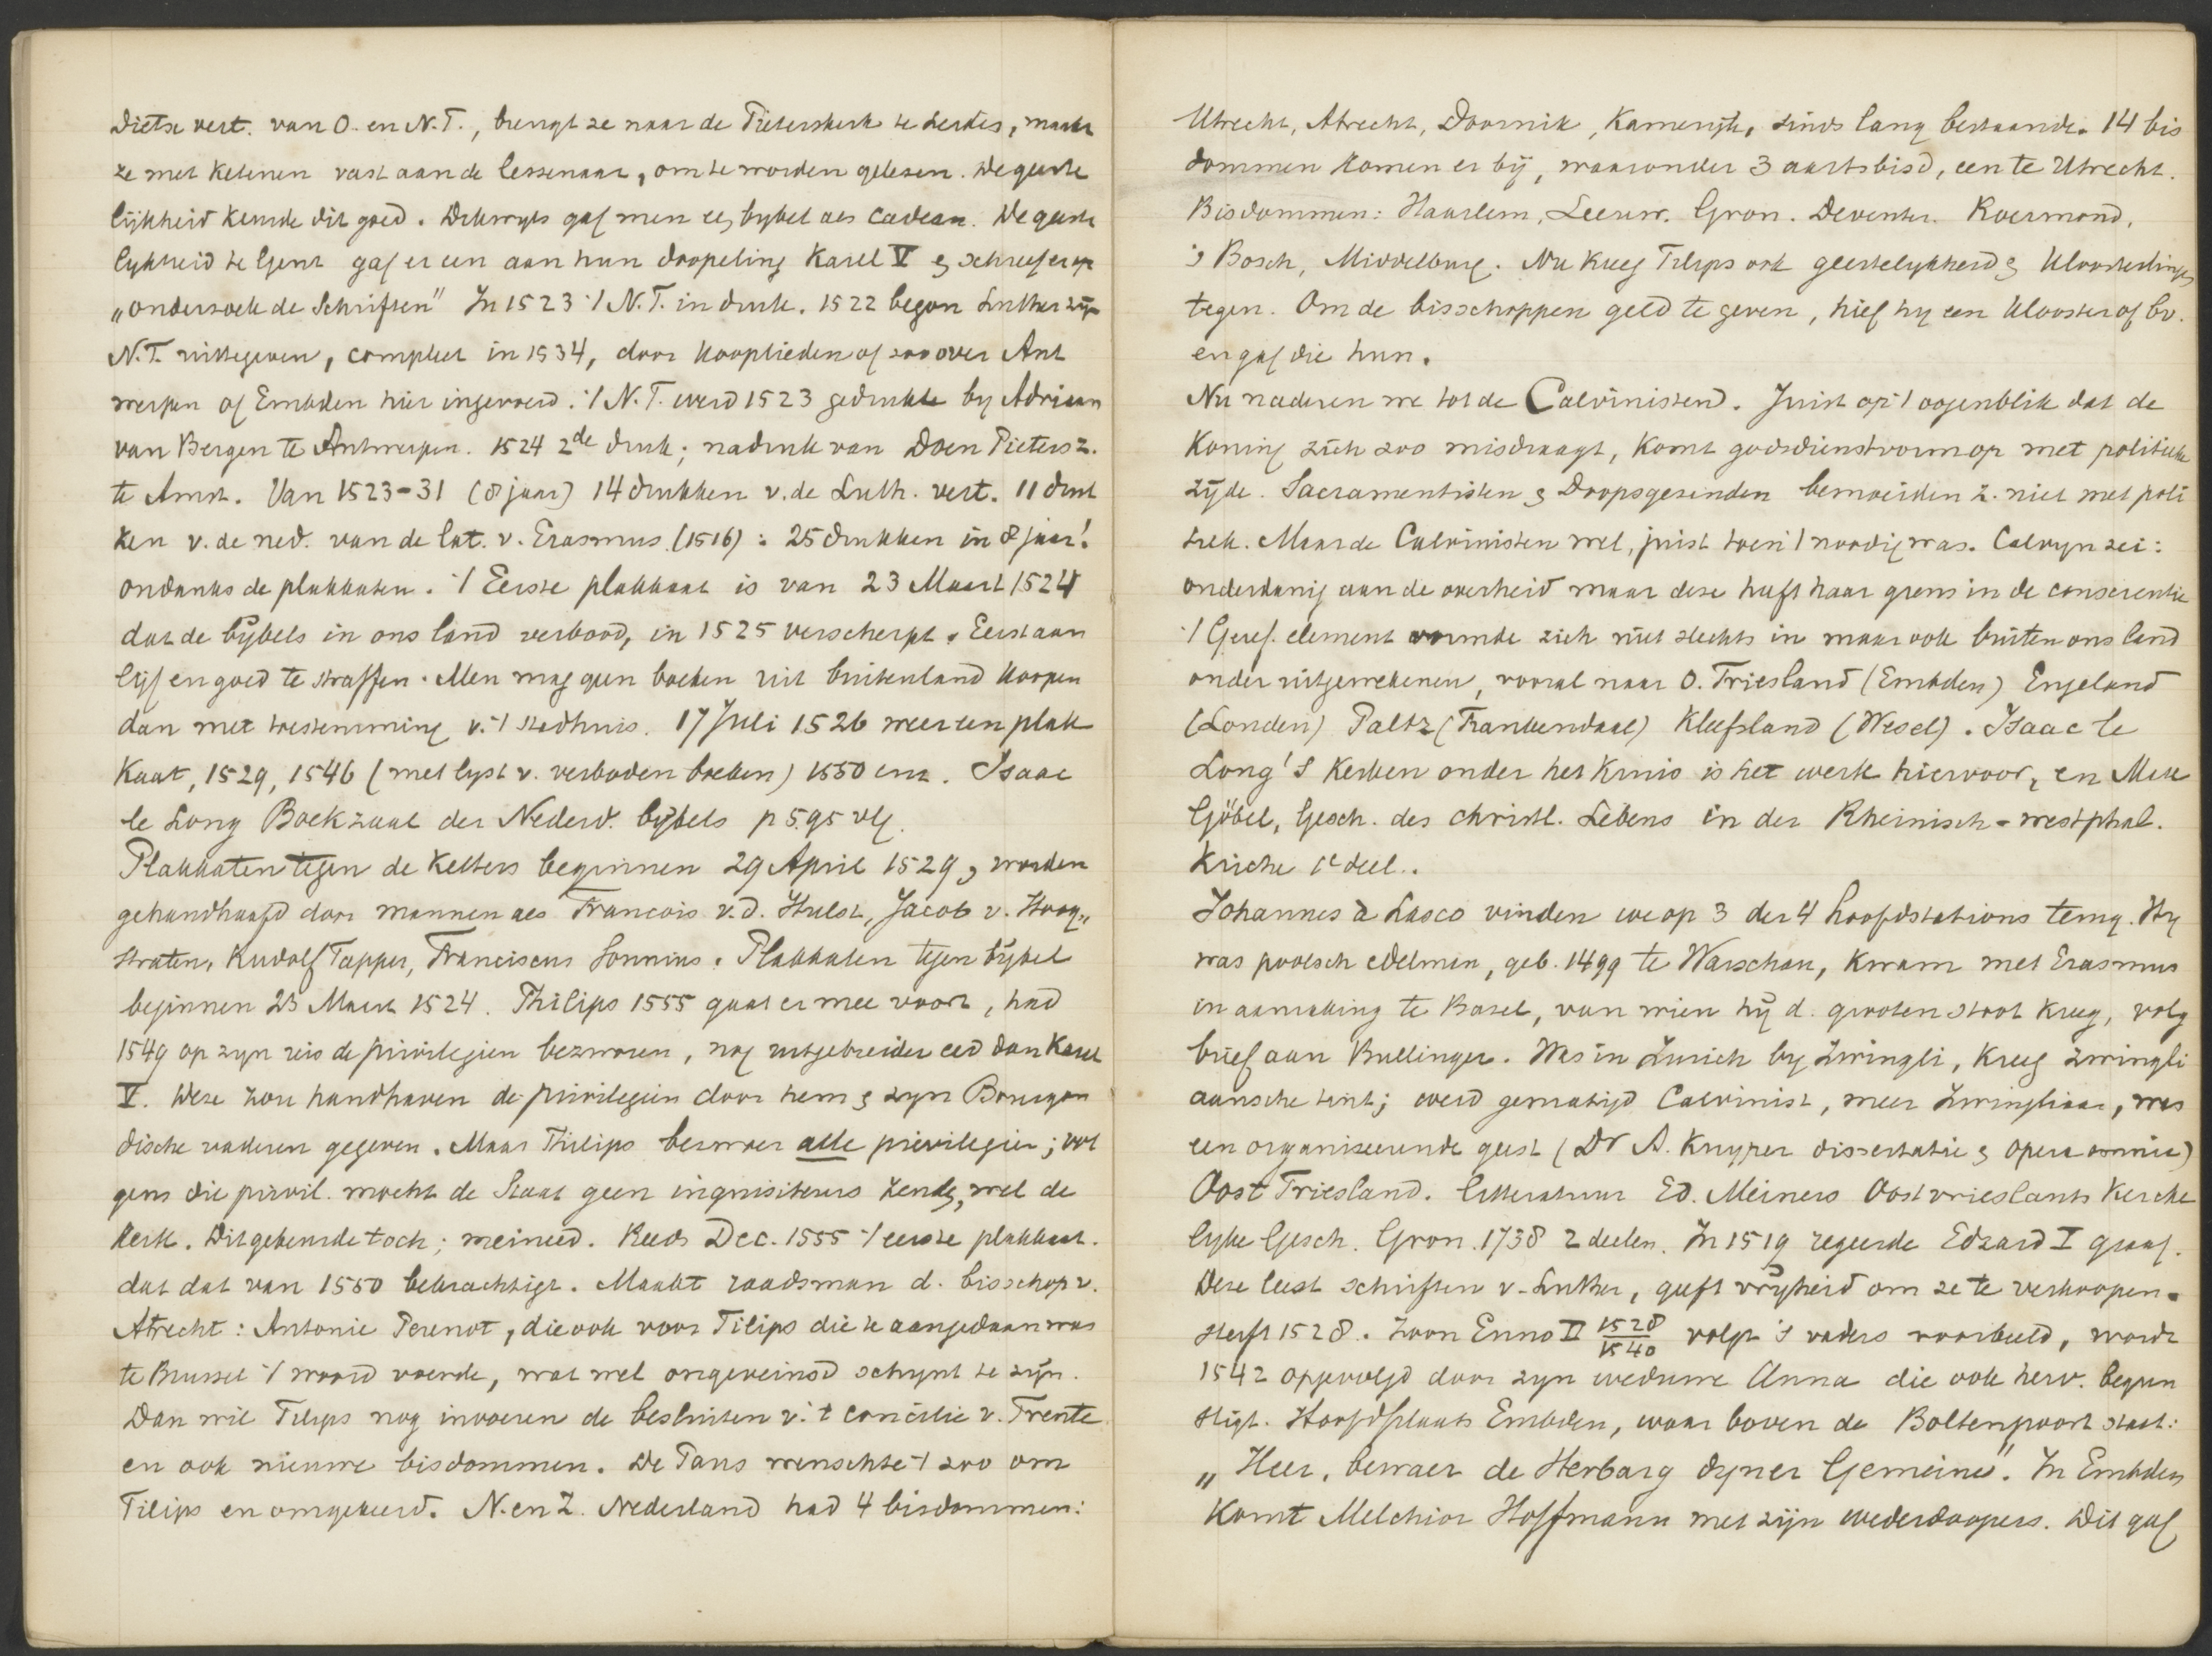 Dietse vert. van O. en N.T., brengt ze naar de Pieterskerk te Leiden, maakt
ze met ketenen vast aan de lessenaar, om te worden gelezen. De geeste
lijkheid keurde dit goed. Dikwyls gaf men een bybel als cadeau. De geeste
lykheid te Gent gaf er een aan hun doopeling Karel V en schreef er op
„onderzoek de Schriften" In 1523 't N.T. in druk. 1522 begon Luther zijn
N.T. uittegeven, compleet in 1534, door kooplieden of zoo over Ant
werpen of Embden hier ingevoerd. 't N.T. werd 1523 gedrukt by Adriaan
van Bergen te Antwerpen. 1524 2de druk; nadruk van Doen Pietersz.
te Amst. Van 1523-31 (8 jaar) 14 drukken v. de Luth. vert. 11 druk
ken v. de ned. van de lat. v. Erasmus (1516): 25 drukken in 8 jaar!
ondanks de plakkaten. 't Eerste plakkaat is van 23 Maart 1524
dat de bybels in ons land verbood, in 1525 verscherpt. Eerst aan
lijf en goed te straffen. Men mag geen boeken uit buitenland koopen
dan met toestemming v. 't stadhuis. 17 Juli 1526 weer een plak
kaat, 1529, 1546 (met lyst v. verboden boeken) 1550 enz. Isaac
le Long Boekzaal der Nederd. bybels p 595 vlg.
Plakkaten tegen de ketters beginnen 29 April 1529, worden
gehandhaafd door mannen als Francois v.d. Hulst, Jacob v. Hoog„
straten, Rudolf Tapper, Franciscus Sonnius. Plakkaten tegen bybel
beginnen 23 Maart 1524. Philips 1555 gaat er mee voort, had
1549 op zyn reis de privilegien bezworen, nog uitgebreider eed dan Karel
V. Deze zou handhaven de privilegien door hem en zyn Bourgon
dische vaderen gegeven. Maar Philips bezwoer alle privilegien; vol
gens die privil. mocht de Staat geen inquisiteurs zenden, wel de
kerk. Dit gebeurde toch; meineed. Reeds Dec. 1555 't eerste plakkaat.
dat dat van 1550 bekrachtigt. Maakt raadsman d. bisschop v.
Atrecht: Antonie Perenot, die ook voor Filips die te aangedaan was
te Brussel 't woord voerde, wat wel ongeveinsd schynt te zijn.
Dan wil Filips nog invoeren de besluiten v. 't concilie v. Trente
en ook nieuwe bisdommen. De Paus wenschte 't zoo om
Filips en omgekeerd. N. en Z. Nederland had 4 bisdommen:
Utrecht, Atrecht, Doornik, Kamerijk, sinds lang bestaande. 14 bis
dommen komen er bij, waaronder 3 aartsbisd, een te Utrecht.
Bisdommen: Haarlem, Leeuw. Gron. Deventer. Roermond,
's Bosch, Middelburg. Nu kreeg Filips ook geestelykheid en kloosterlingen
tegen. Om de bisschoppen geld te geven, hief hy een klooster of bv.
en gaf die hun.
Nu naderen we tot de Calvinisten. Juist op 't oogenblik dat de
Koning zich zoo misdraagt, komt godsdienstvorm op met politieke
zijde. Sacramentisten en Doopsgezinden bemoeiden z. niet met poli
tiek. Maar de Calvinisten wel, juist toen 't noodig was. Calvyn zei:
onderdanig aan de overheid maar deze heeft haar grens in de conscientie
't Geref. element vormde zich niet slechts in maar ook buiten ons land
onder uitgewekenen, vooral naar O. Friesland (Embden) Engeland
(Londen) Paltz (Frankendaal) Kleefsland (Wesel). Isaac le
Long's Kerken onder het Kruis is het werk hiervoor, en Max
Göbel, Gesch. des christl. Lebens in der Rheinisch-westphal.
Kirche 1e deel.
Johannes à Lasco vinden we op 3 der 4 hoofdstations terug. Hy
was poolsch edelman, geb. 1499 te Warschau, kwam met Erasmus
in aanraking te Basel, van wien hij d. grooten stoot kreeg, volg
brief aan Bullinger. Was in Zurich by Zwingli, kreeg zwingli
aansche tint; werd gematigd Calvinist, meer Zwingliaan, was
een organiseerende geest (Dr A. Kuyper dissertatie en opera omnia)
Oost Friesland. Litteratuur Ed. Meiners Oostvrieslants Kerche
lyke Gesch. Gron. 1738 2 deelen. In 1519 regeerde Edzard I graaf.
Deze leest schriften v. Luther, geeft vryheid om ze te verkoopen.
Sterft 1528. Zoon Enno II 1528/1540 volgt 's vaders voorbeeld, wordt
1542 opgevolgd door zyn weduwe Anna die ook herv. begun
stigt. Hoofdplaats Embden, waar boven de Boltenpoort staat:
„Heer, bewaer de Herbarg dyner Gemeine". In Embden
komt Melchior Hoffmann met zijn wederdoopers. Dit gaf